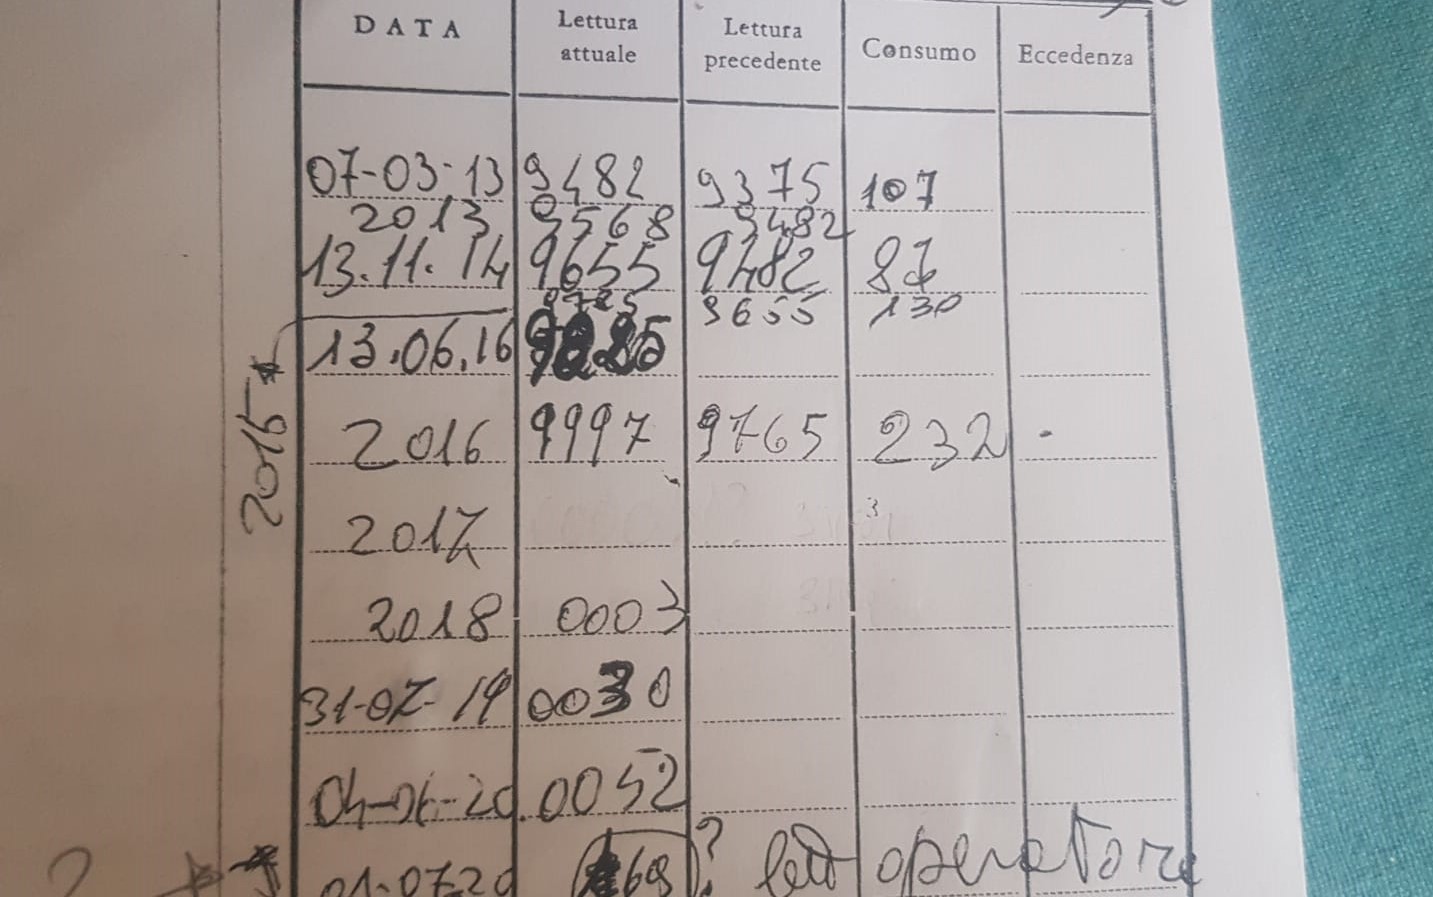 DATA Lettura attuale Lettura precedente Consumo Eccedenza
07-03-13 9482 9375 107
2013 9568 9482
13.11.14 9655 9482 87
9785 9655 130
13.06.16
2015*
2016 9997 9765 232
2017 3
2018 0003
31-07-19 0030
04-06-20 0052
01-07-20 69 ? lett operatore
?